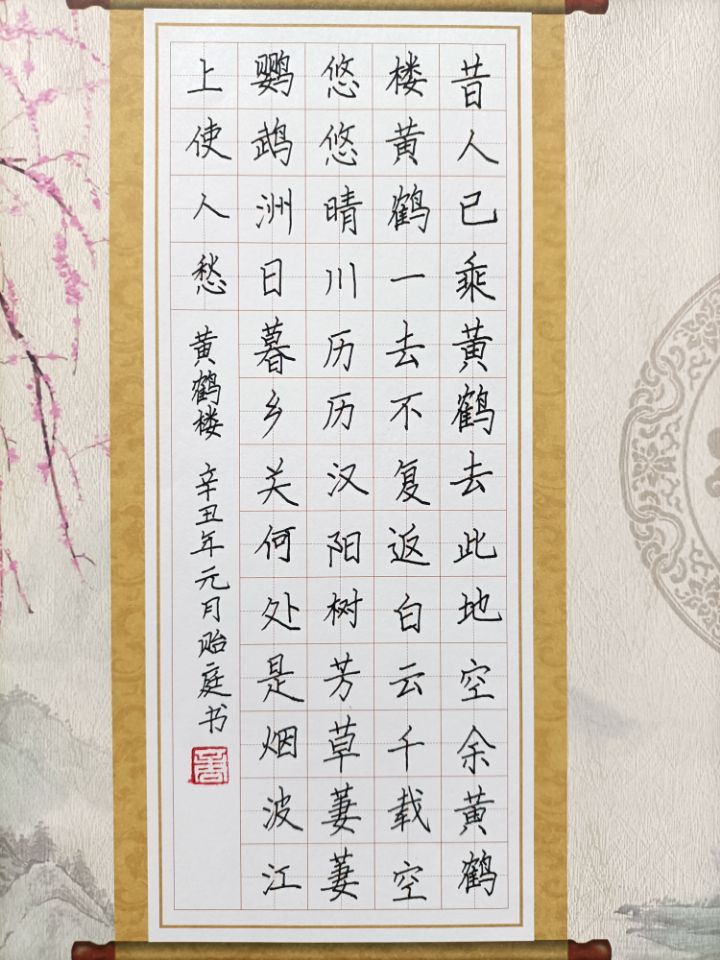 昔人已乘黄鹤去此地空余黄鹤
楼黄鹤一去不复返白云千载空
悠悠晴川历历汉阳树芳草萋萋
鹦鹉洲日暮乡关何处是烟波江
上使人愁 黄鹤楼 辛丑年元月贻庭书